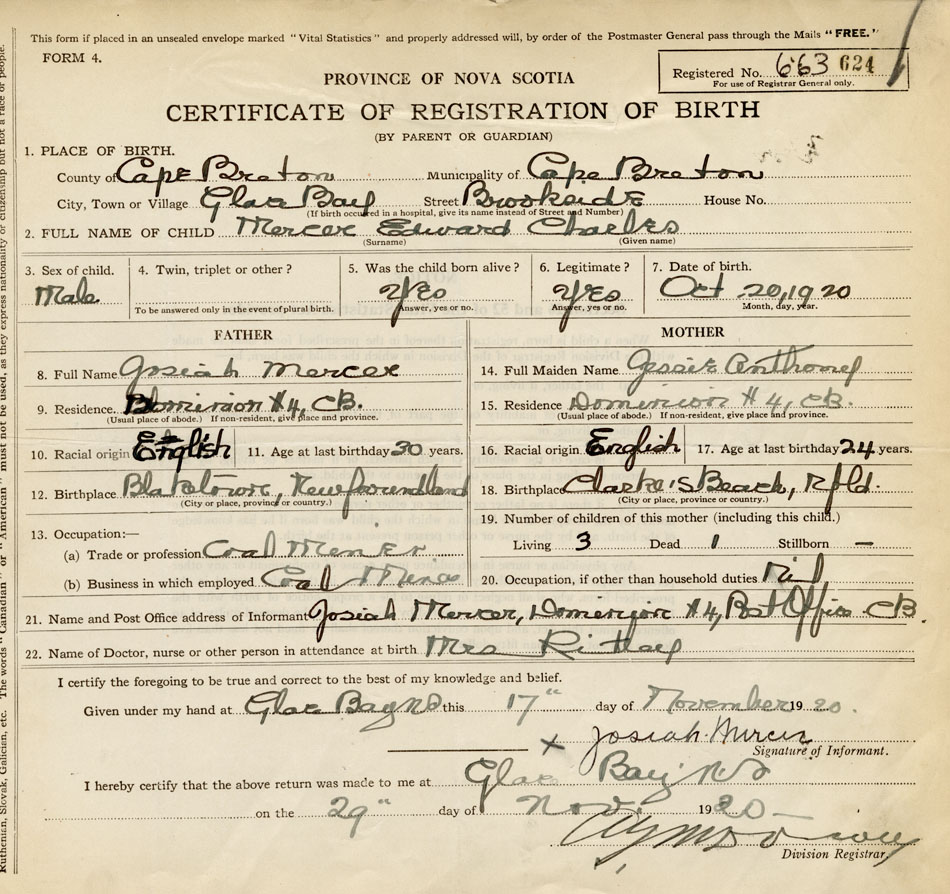 This form if placed in an unsealed envelope marked "Vital Statistics" and properly addressed will, by order of the Postmaster General pass through the Mails "FREE."
FORM 4.
Registered No. 663 624
For use of Registrar General only.
PROVINCE OF NOVA SCOTIA
CERTIFICATE OF REGISTRATION OF BIRTH
(BY PARENT OR GUARDIAN)
1. PLACE OF BIRTH.
County of Cape Breton Municipality of Cape Breton
City, Town or Village Glace Bay Street Brookside House No.
(If birth occurred in a hospital, give its name instead of Street and Number)
2. FULL NAME OF CHILD Mercer Edward Charles
(Surname) (Given name)
3. Sex of child. 4. Twin, triplet or other? 5. Was the child born alive? 6. Legitimate? 7. Date of birth.
Male Yes Yes Oct 20, 1920
To be answered only in the event of plural birth. Answer, yes or no. Answer, yes or no. Month, day, year.
FATHER
8. Full Name Josiah Mercer
9. Residence. Dominion #4, CB.
(Usual place of abode.) If non-resident, give place and province.
10. Racial origin English 11. Age at last birthday 30 years.
12. Birthplace Newfoundland
(City or place, province or country.)
13. Occupation:—
(a) Trade or profession Coal Mener
(b) Business in which employed Coal Mines
MOTHER
14. Full Maiden Name Jessie Anthony
15. Residence Dominion #4, CB.
(Usual place of abode.) If non-resident, give place and province.
16. Racial origin English 17. Age at last birthday 24 years.
18. Birthplace Clarke's Beach, Nfld.
(City or place, province or country.)
19. Number of children of this mother (including this child.)
Living 3 Dead 1 Stillborn —
20. Occupation, if other than household duties Nil
21. Name and Post Office address of Informant Josiah Mercer, Dominion #4, Post Office CB.
22. Name of Doctor, nurse or other person in attendance at birth Mrs
I certify the foregoing to be true and correct to the best of my knowledge and belief.
Given under my hand at Glace Bay NS this 17" day of November 1920.
x Josiah Mercer
Signature of Informant.
I hereby certify that the above return was made to me at Glace Bay NS
on the 29" day of Nov 1920—
Division Registrar.
Ruthenian, Slovak, Galician, etc. The words "Canadian" or "American" must not be used, as they express nationality or citizenship but not a race or people.